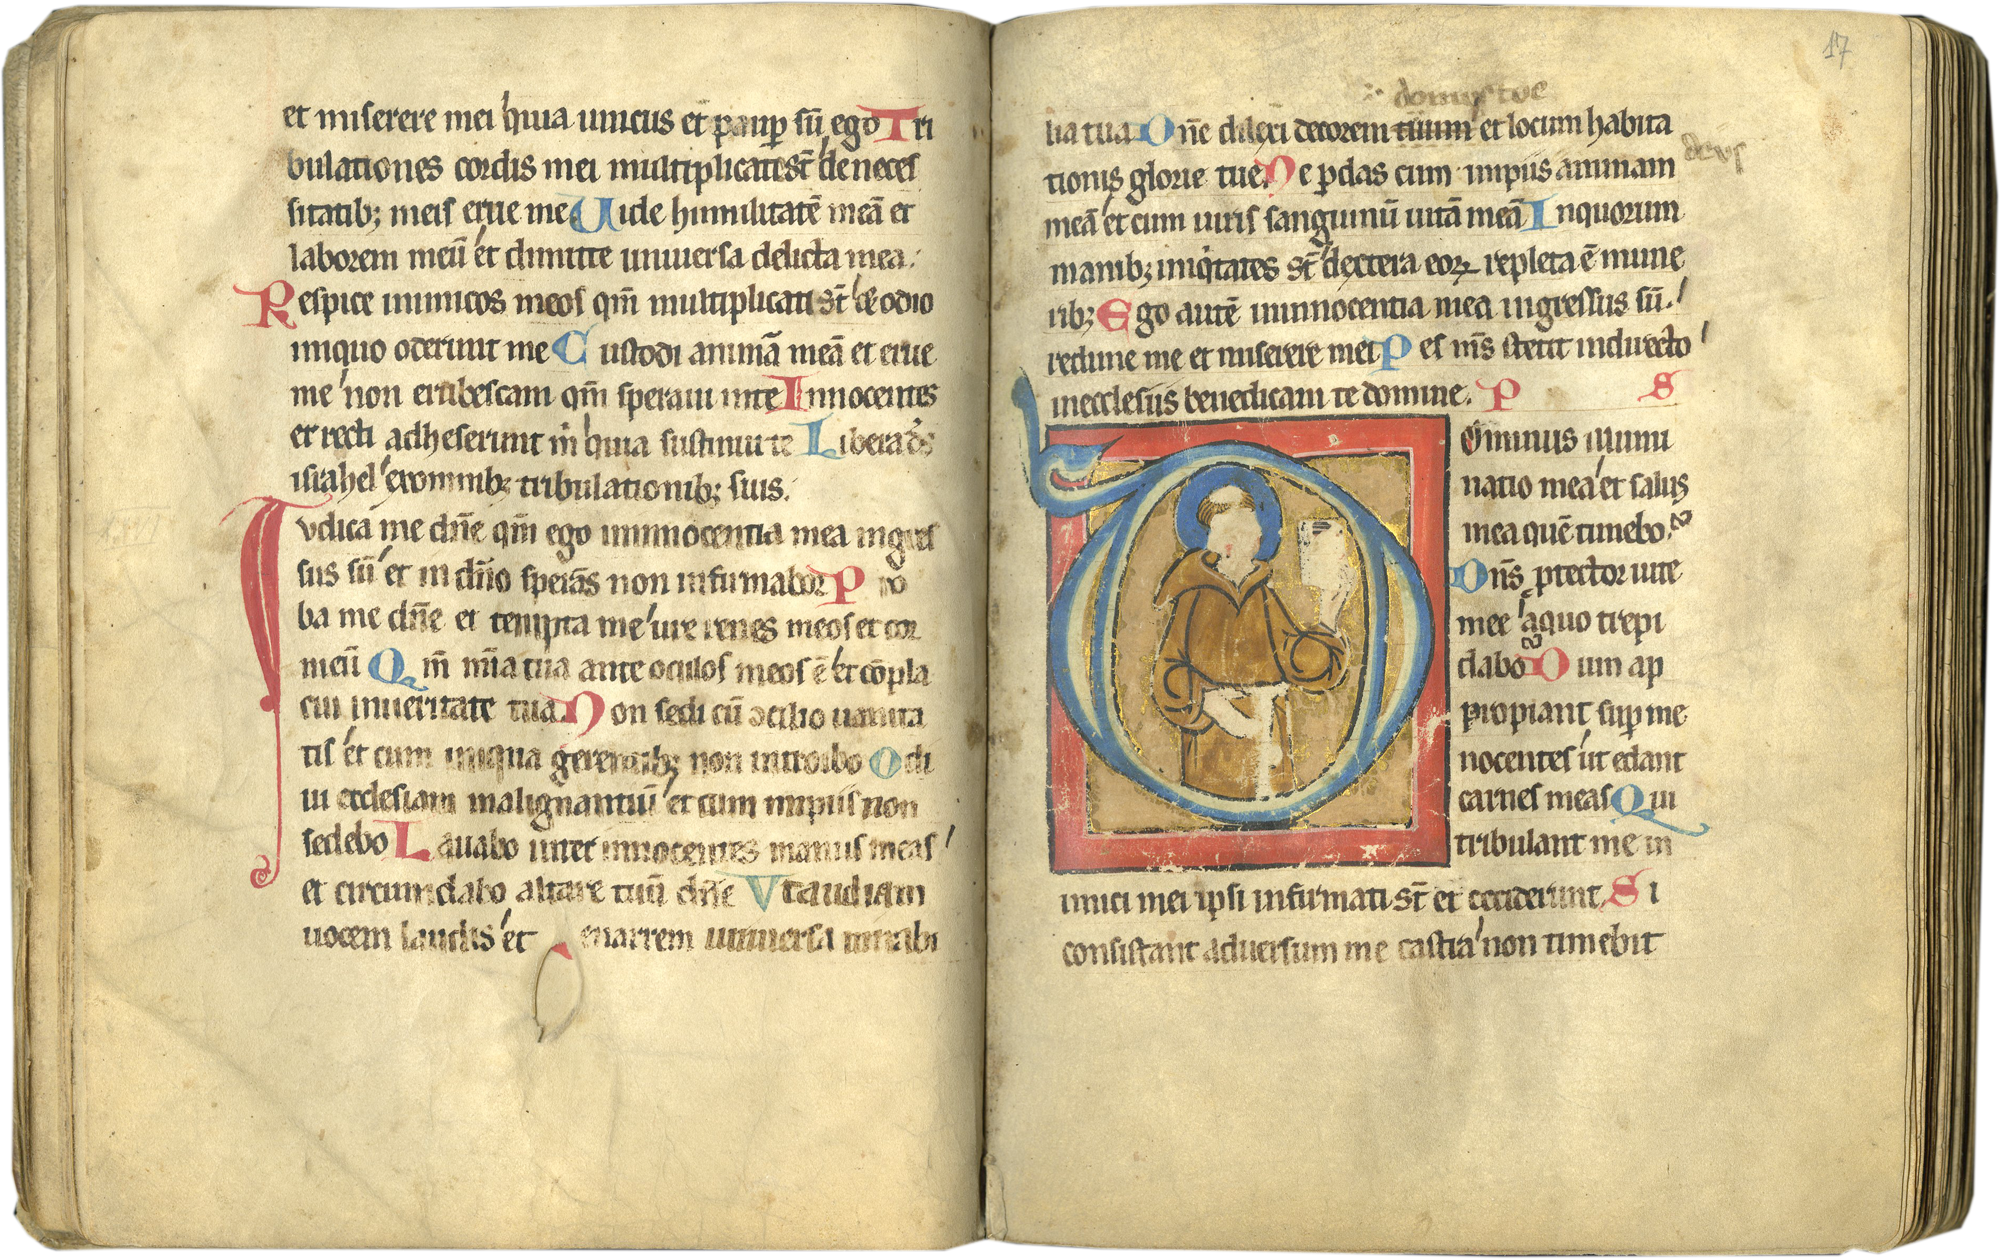 et miserere mei quia unicus et paup sũ ego Tri
bulationes cordis mei multiplicate st̃ de neces
sitatib; meis erue me Vide humilitatẽ meã et
laborem meũ et dimitte uniuersa delicta mea.
Respice inimicos meos qm̃ multiplicati st̃ et odio
iniquo oderunt me Custodi animã meã et erue
me non erubescam qm̃ speraui inte Innocentes
et recti adheserunt m̃ quia sustinui te Libera ds̃
israhel exomnib; tribulationib; suis.
Iudica me dñe qm̃ ego ininnocentia mea ingres
sus sũ et in dño sperãs non infirmabor Pro
ba me dñe et tempta me ure renes meos et cor
meũ Qm̃ mĩa tua ante oculos meos ẽ et cõpla
cui inueritate tua Non sedi cũ cilio uanita
tis et cum iniqua gerentib; non introibo Odi
ui ecclesiam malignantiũ et cum impiis non
sedebo Lauabo inter innocentes manus meas
et circumdabo altare tuũ dñe Vt audiam
uocem laudis et enarrem uniuersa mirabi
17
domus tue
lia tua Dñe dilexi decorem tuum et locum habita
tionis glorie tue Ne pdas cum impiis animam
meã et cum uiris sanguinũ uitã meã Inquorum
manib; iniqtates st̃ dextera eoꝝ repleta ẽ mune
rib; Ego autẽ ininnocentia mea ingressus sũ.
redime me et miserere mei Pes ms̃ stetit indirecto
inecclesiis benedicam te domine. P S
Ominus illumi
natio mea et salus
mea quẽ timebo.
Dñs ptector uite
mee aquo trepi
dabo Dum ap
propiant sup me
nocentes ut edant
carnes meas Qui
tribulant me in
imici mei ipsi infirmati st̃ et ceciderunt Si
consistant aduersum me castra non timebit